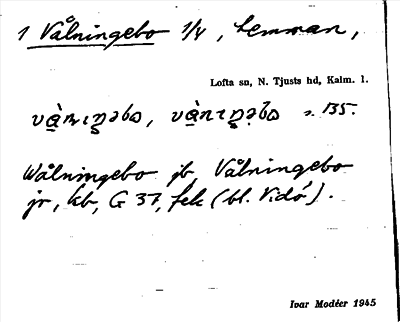 1 Vålningebo 1/4, hemman,
Lofta sn, N. Tjusts hd, Kalm. l.
s. 135.
Wålningebo jb, Vålningebo
jr, kb, G 37, fek (bl. Vidö).
Ivar Modéer 1945